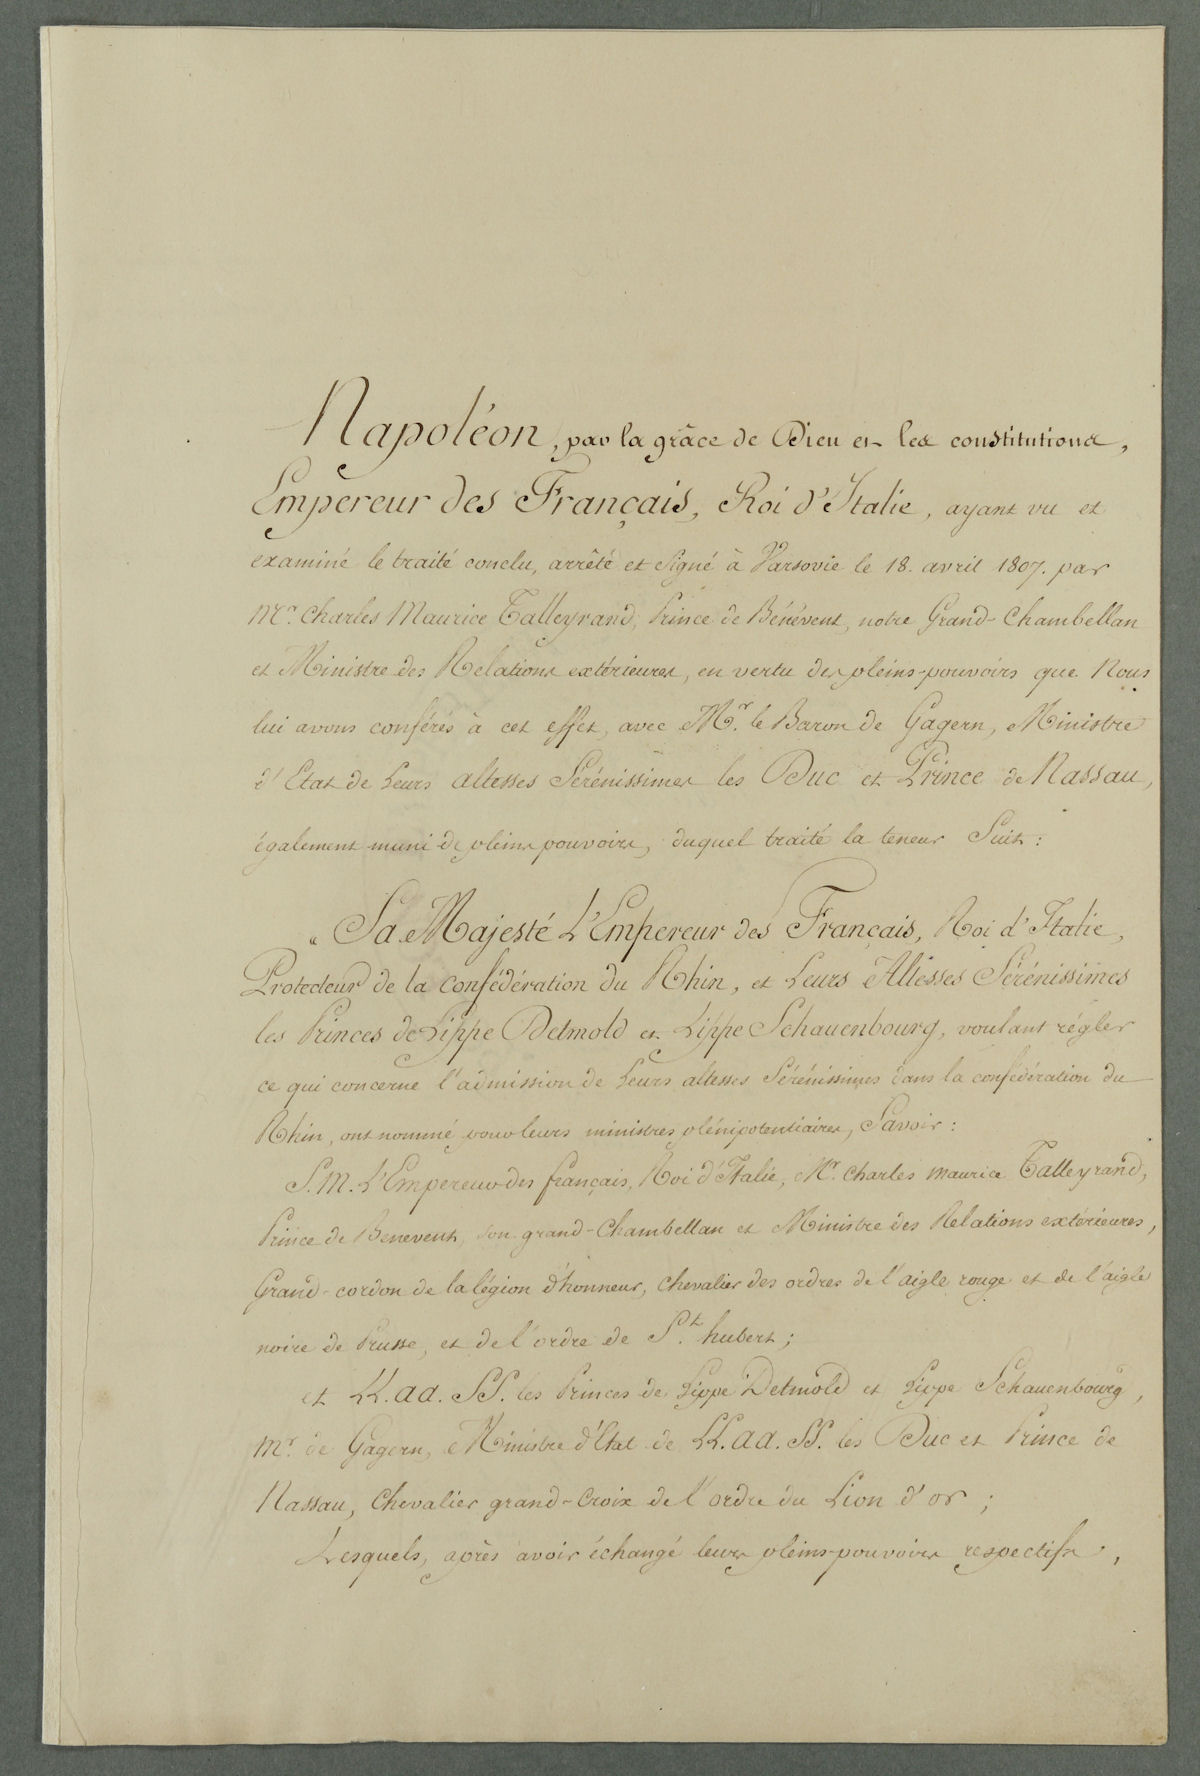 Napoléon, par la grâce de Dieu et les constitutions,
Empereur des Français, Roi d'Italie, ayant vu et
examiné le traité conclu, arrêté et signé à Varsovie le 18. avril 1807. par
Mr. Charles Maurice Talleyrand, Prince de Bénévent, notre Grand-Chambellan
et Ministre des Relations extérieures, en vertu des pleins-pouvoirs que Nous
lui avons conférés à cet effet, avec Mr. le Baron de Gagern, Ministre
d'Etat de Leurs altesses Sérénissimes les Duc et Prince de Nassau,
également muni de pleins pouvoirs, duquel traité la teneur Suit:
„ Sa Majesté L'Empereur des Français, Roi d'Italie,
Protecteur de la confédération du Rhin, et Leurs Altesses Sérénissimes
les Princes de Lippe Detmold et Lippe Schauenbourg, voulant régler
ce qui concerne l'admission de Leurs altesses Sérénissimes dans la confédération du
Rhin, ont nommé pour leurs ministres plénipotentiaires, Savoir:
S. M. L'Empereur des français, Roi d'Italie, Mr. Charles maurice Talleyrand,
Prince de Benevent, son grand-Chambellan et Ministre des Relations extérieures,
Grand-cordon de la légion d'honneur, chevalier des ordres de l'aigle rouge et de l'aigle
noire de Prusse, et de l'ordre de St. hubert;
et LL. aa. SS. les Princes de Lippe Detmold et Lippe Schauenbourg,
Mr. de Gagern, Ministre d'Etat de LL. aa. SS. les Duc et Prince de
Nassau, Chevalier grand-Croix de l'ordre du Lion d'or;
Lesquels, après avoir échangé leurs pleins-pouvoirs respectifs,